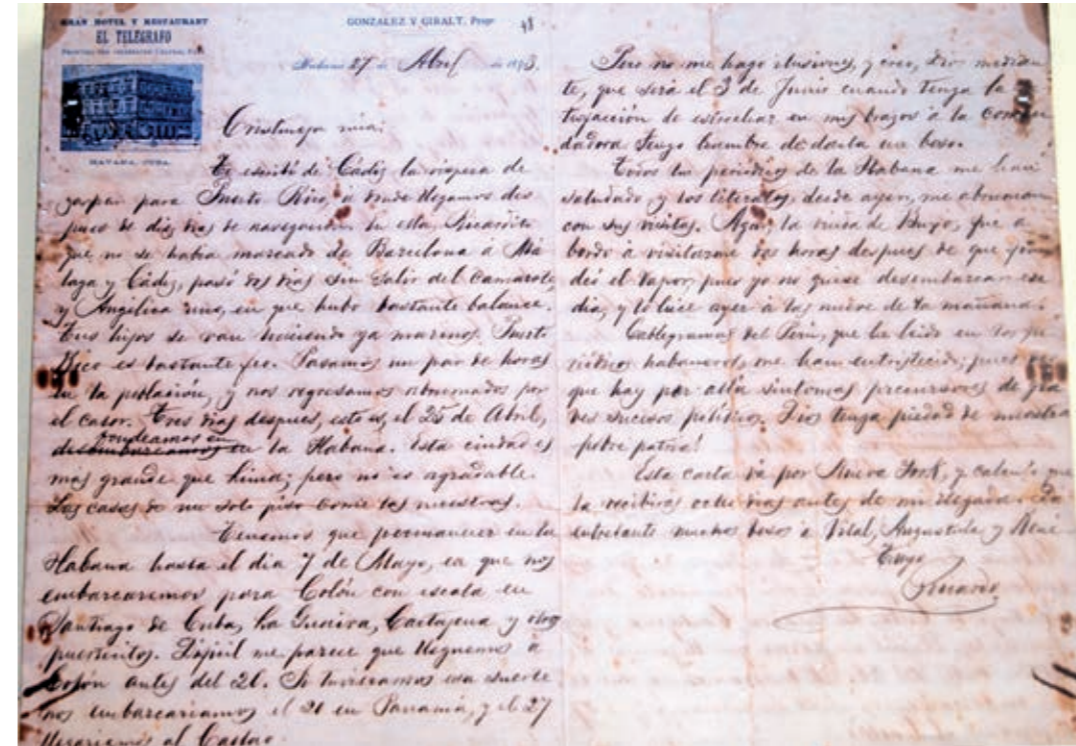 GRAN HOTEL Y RESTAURANT
EL TELÉGRAFO
HAVANA, CUBA.
GONZALEZ Y GIRALT, Props
48
Habana 27 de Abril de 1893.
Cristineja mia:
Te escribí de Cádiz la víspera de
zarpar para Puerto Rico, á donde llegamos des
pues de diez dias de navegacion. En esta, Ricardito
que no se habia mareado de Barcelona á Má
laga y Cádiz, pasó dos dias sin salir del camarote,
y Angélica uno, en que hubo bastante balance.
Tus hijos se van haciendo ya marinos. Puerto
Rico es bastante feo. Pasamos un par de horas
en la poblacion, y nos regresamos abrumados por
el calor. Tres dias despues, esto es, el 25 de Abril,
fondeamos en
desembarcamos en la Habana. Esta ciudad es
mas grande que Lima; pero no es agradable.
Las casas de un solo piso como las nuestras.
Tenemos que permanecer en la
Habana hasta el dia 7 de Mayo, en que nos
embarcaremos para Colón con escala en
Santiago de Cuba, La Guaira, Cartajena y otros
puertecitos. Dificil me parece que lleguemos á
Colón antes del 20. Si tuvieramos esa suerte
nos embarcariamos el 21 en Panamá, y el 27
llegariamos al Callao.
Pero no me hago ilusiones, y creo, Dios median
te, que será el 3 de Junio cuando tenga la sa
tisfaccion de estrechar en mis brazos á la
Tengo hambre de darla un beso.
Todos los periódicos de la Habana me han
saludado y los literatos, desde ayer, me abruman
con sus visitas. la viuda de que á
bordo á visitarme dos horas despues de que fon
deó el vapor, pues yo no quise desembarcar ese
dia, y lo hice ayer á las nueve de la mañana.
Cablegramas del Perú, que he leido en los pe
riódicos habaneros, me han entristecido; pues veo
que hay por allá sintomas precursores de gra
ves sucesos politicos. Dios tenga piedad de nuestra
pobre patria!
Esta carta vá por Nueva York, y calculo que
la recibiras ocho dias antes de mi llegada.
muchos besos á Vital, Augusto y René
Tuyo
Ricardo